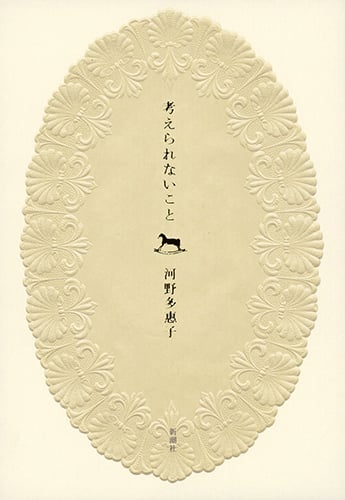 考えられないこと
河野多惠子
新潮社